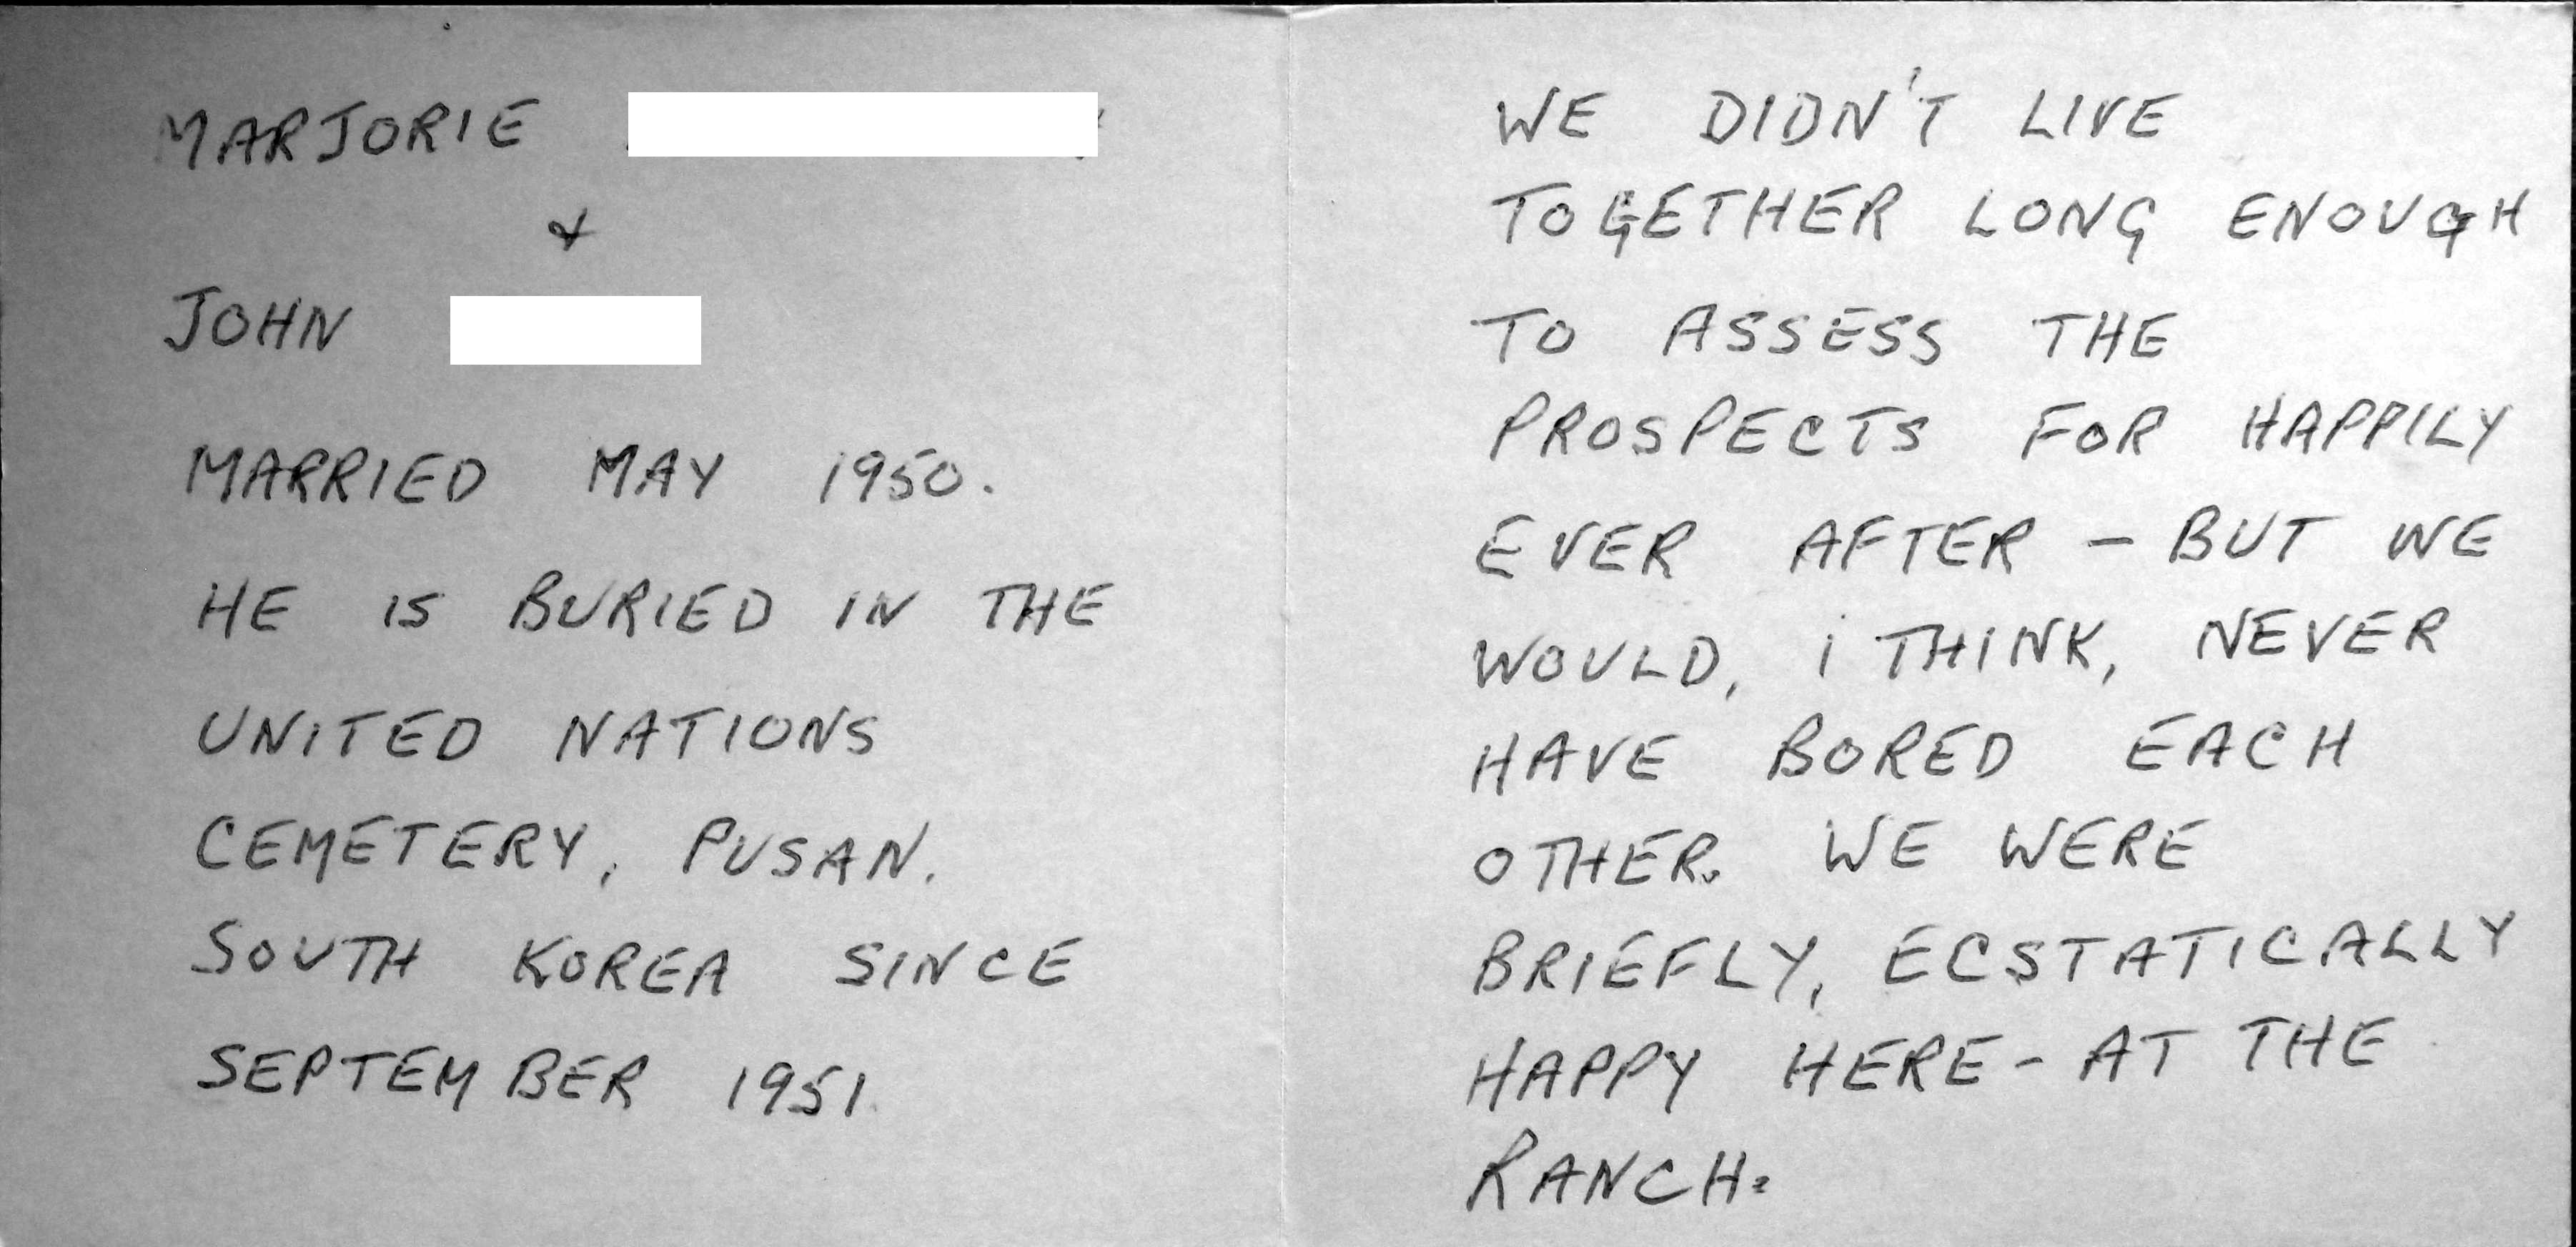 MARJORIE
&
JOHN
MARRIED MAY 1950.
HE IS BURIED IN THE
UNITED NATIONS
CEMETERY, PUSAN.
SOUTH KOREA SINCE
SEPTEMBER 1951.
WE DIDN'T LIVE
TOGETHER LONG ENOUGH
TO ASSESS THE
PROSPECTS FOR HAPPILY
EVER AFTER – BUT WE
WOULD, i THINK, NEVER
HAVE BORED EACH
OTHER. WE WERE
BRIEFLY, ECSTATICALLY
HAPPY HERE – AT THE
RANCH.